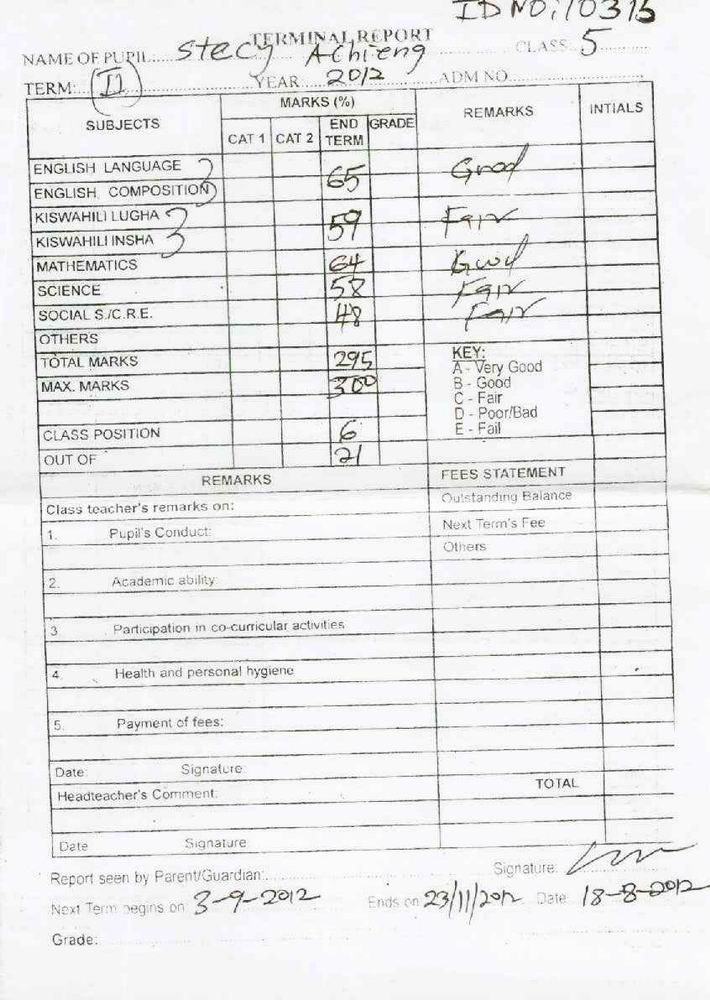 ID NO: 10315
TERMINAL REPORT
NAME OF PUPIL Stecy Achieng CLASS 5
TERM: II YEAR 2012 ADM NO.
SUBJECTS MARKS (%) REMARKS INTIALS
CAT 1 CAT 2 END TERM GRADE
ENGLISH LANGUAGE
ENGLISH COMPOSITION 65 Good
KISWAHILI LUGHA
KISWAHILI INSHA 59 Fair
MATHEMATICS 64 Good
SCIENCE 58 Fair
SOCIAL S./C.R.E. 48 Fair
OTHERS
TOTAL MARKS 295
MAX. MARKS 300
KEY:
A - Very Good
B - Good
C - Fair
D - Poor/Bad
E - Fail
CLASS POSITION 6
OUT OF 21
REMARKS FEES STATEMENT
Class teacher's remarks on: Outstanding Balance
1. Pupil's Conduct: Next Term's Fee
Others
2. Academic ability:
3 Participation in co-curricular activities
4. Health and personal hygiene
5. Payment of fees:
Date: Signature
Headteacher's Comment: TOTAL
Date Signature
Report seen by Parent/Guardian: Signature:
Next Term begins on 3-9-2012 Ends on 23/11/2012 Date 18-8-2012
Grade: